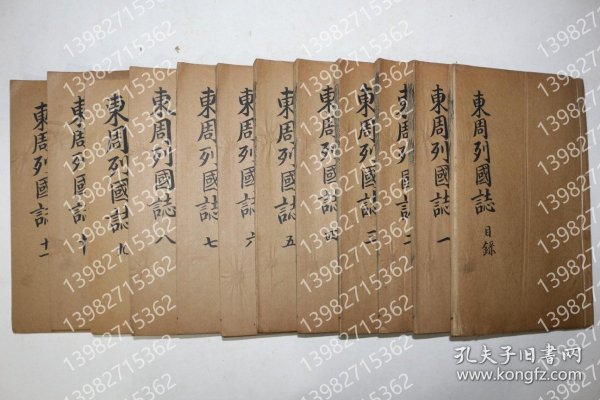 東周列國誌 目錄
東周列國誌 一
東周列國誌 二
東周列國誌 三
東周列國誌 四
東周列國誌 五
東周列國誌 六
東周列國誌 七
東周列國誌 八
東周列國誌 九
東周列國誌 十
東周列國誌 十一
13982715362
孔夫子旧书网
www.kongfz.com